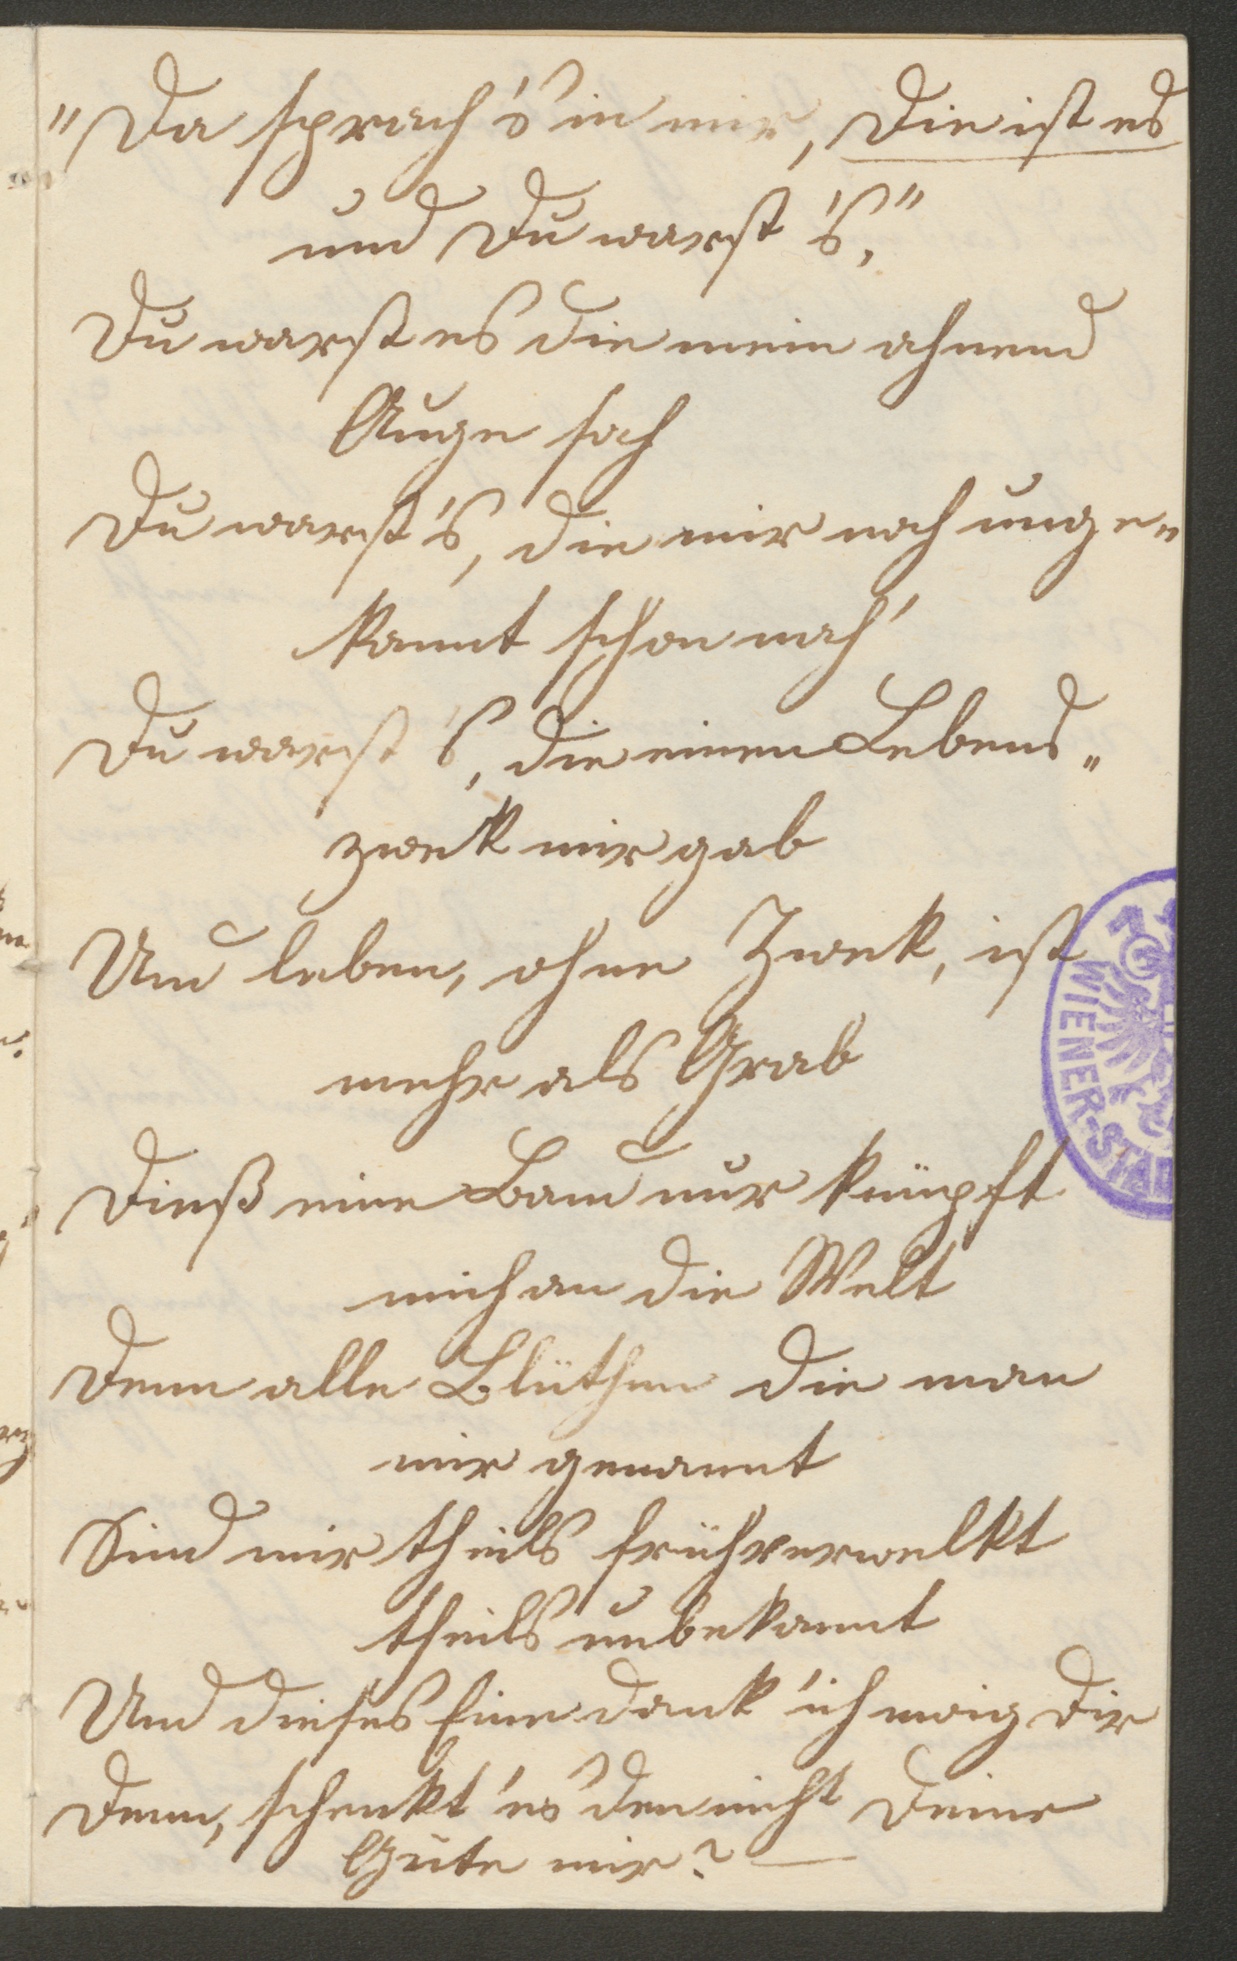 "Da sprach's in mir, die ist es
und Du warst's,"
Du warst es die mein ahnend
Auge sah
Du warst's, die mir noch unge„
kannt schon nah'
Du warst's, die einen Lebens„
zwek mir gab
Und leben, ohne Zwek, ist
mehr als Grab
Dieß eine Band nur knüpft
mich an die Welt
Denn alle Blüthen die man
mir genannt
Sind mir theils frühverwelkt
theils unbekannt
Und dieses Eine dank' ich ewig Dir
Denn, schenkt' es den nicht Deine
Güte mir? —
WIENER-STAD